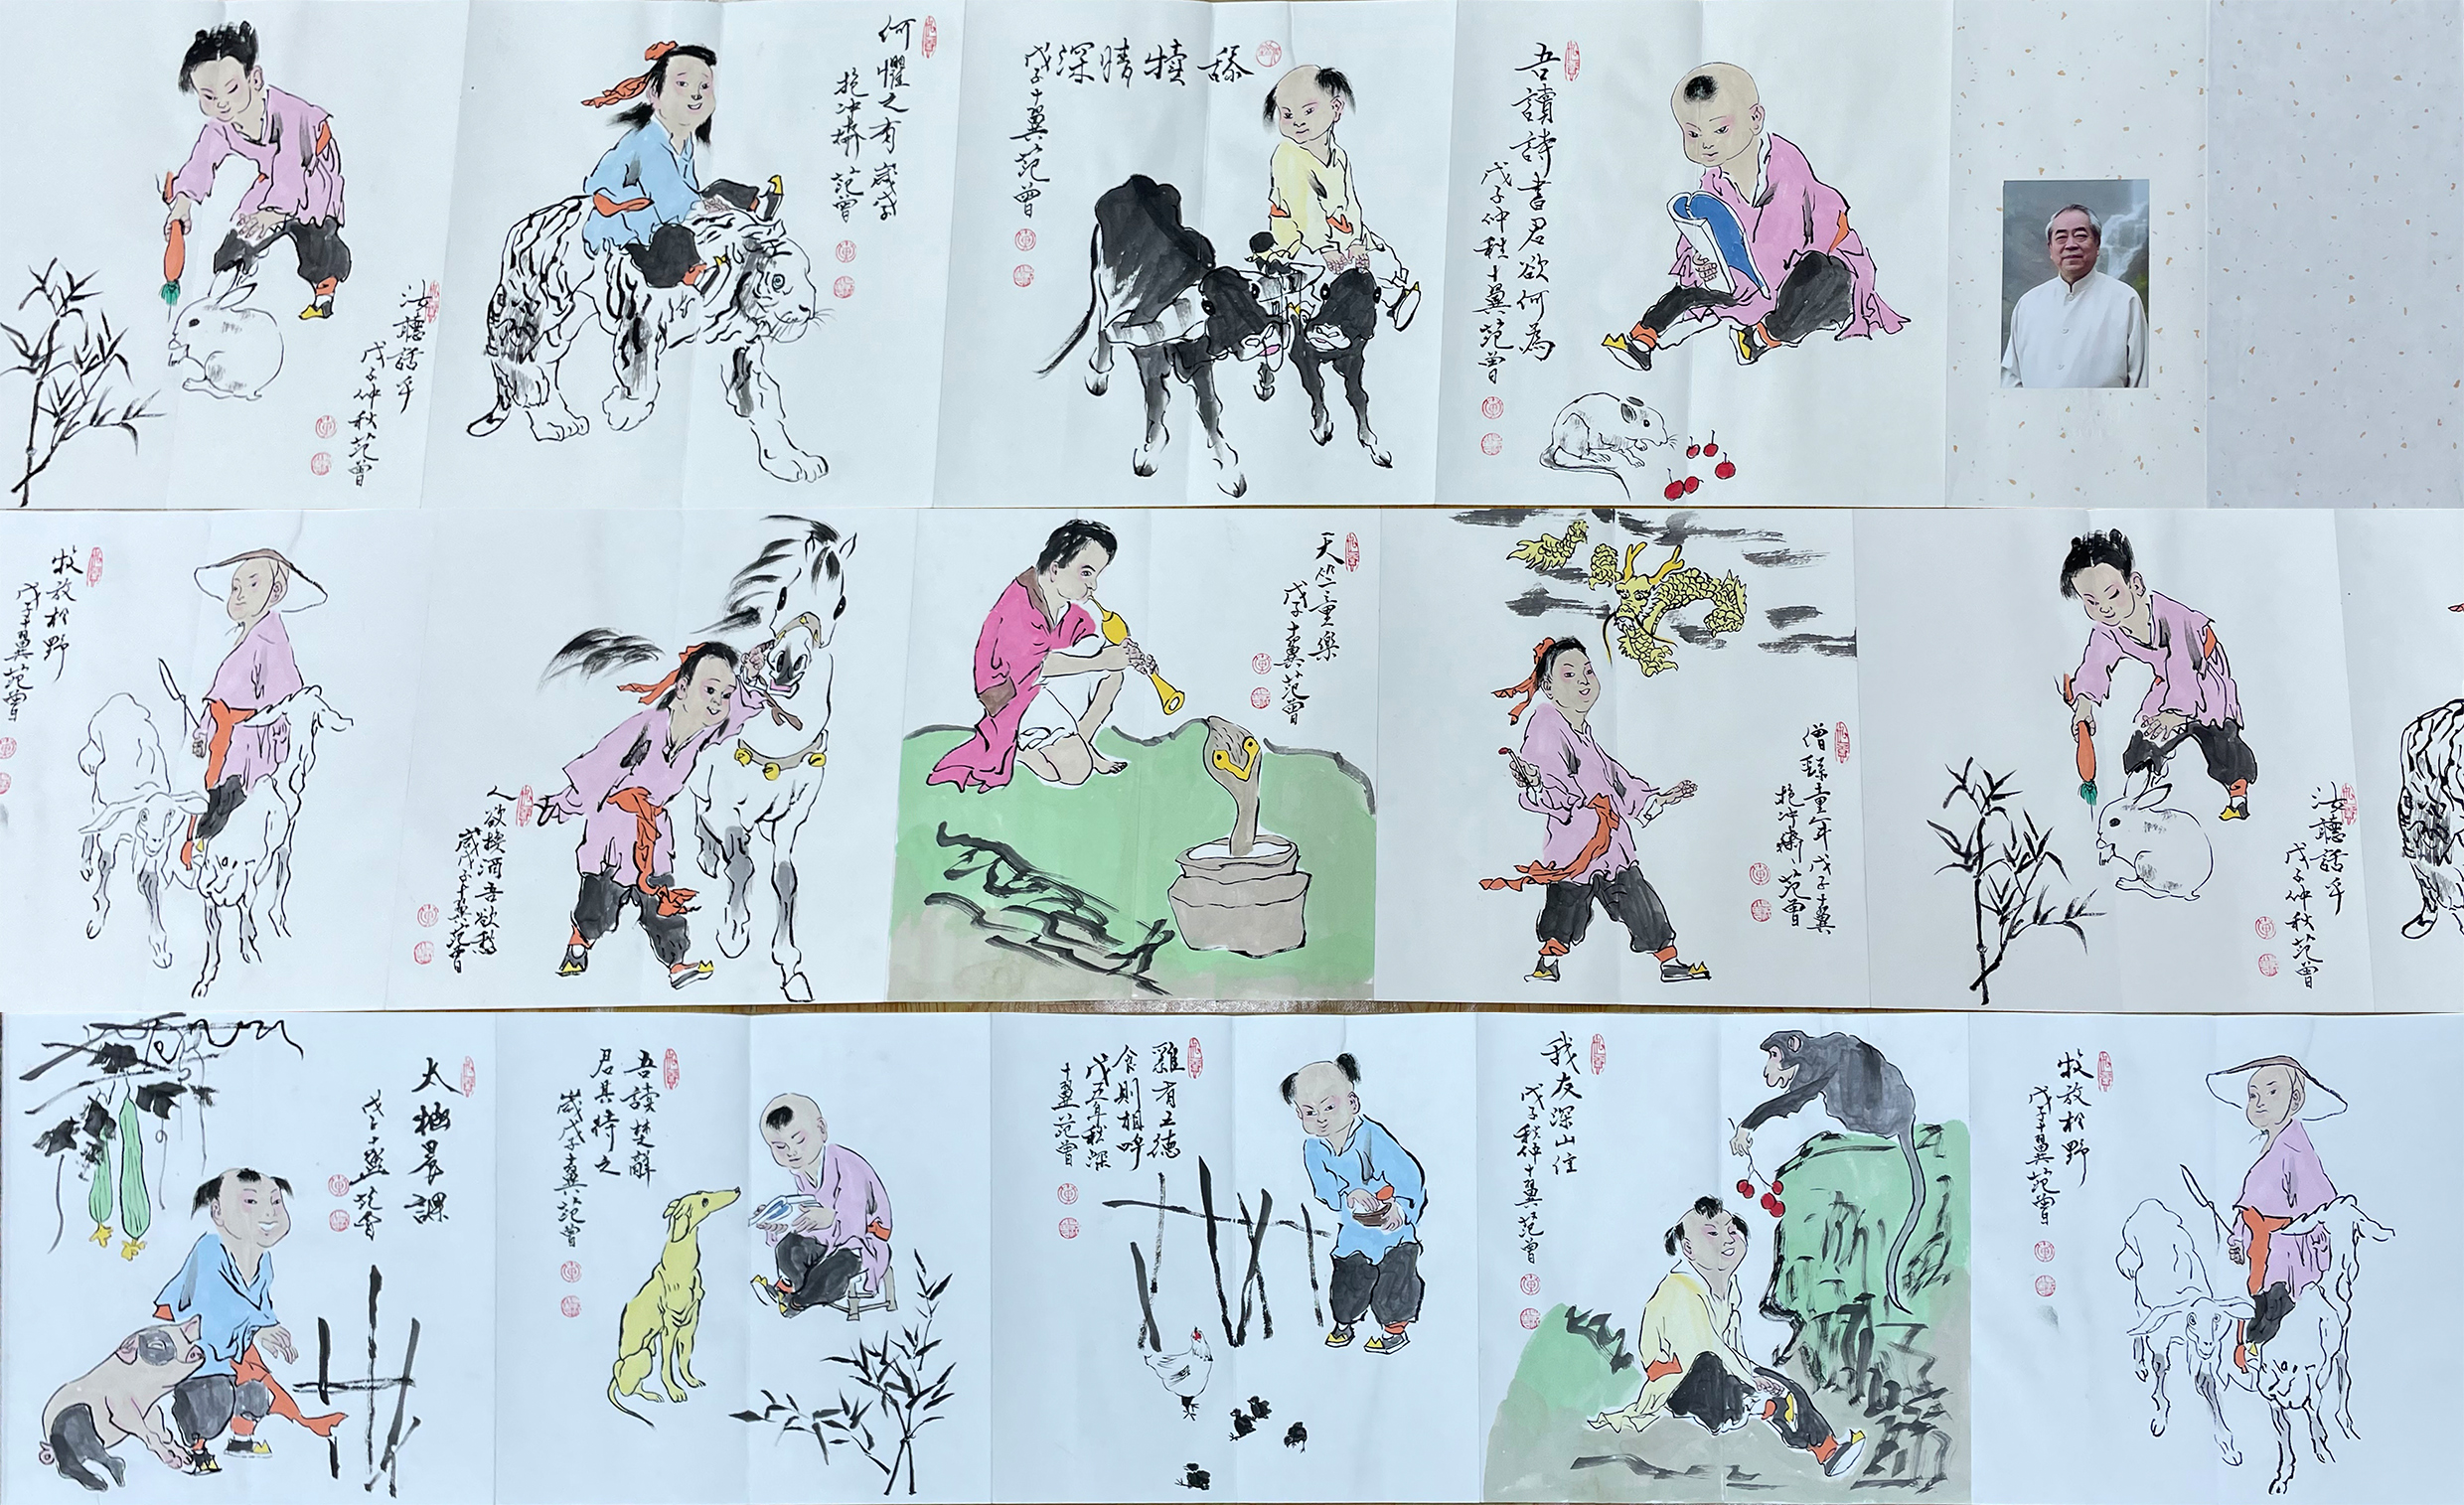 汝聽話乎
戊子仲秋范曾
何懼之有 歲戊子
抱冲齋 范曾
舐犢情深
戊子十翼范曾
吾讀詩書君欲何為
戊子仲秋十翼范曾
牧放於野
戊子十翼范曾
人欲換酒吾欲愁
歲戊子十翼范曾
天竺童樂
戊子十翼范曾
童年戊子十翼
抱冲齋范曾
汝聽話乎
戊子仲秋范曾
太極晨課
戊子十翼范曾
吾讀楚辭
君其待之
歲戊子十翼范曾
雞有五德
食則相呼
十翼范曾
我友深山住
戊子秋仲十翼范曾
牧放於野
戊子十翼范曾